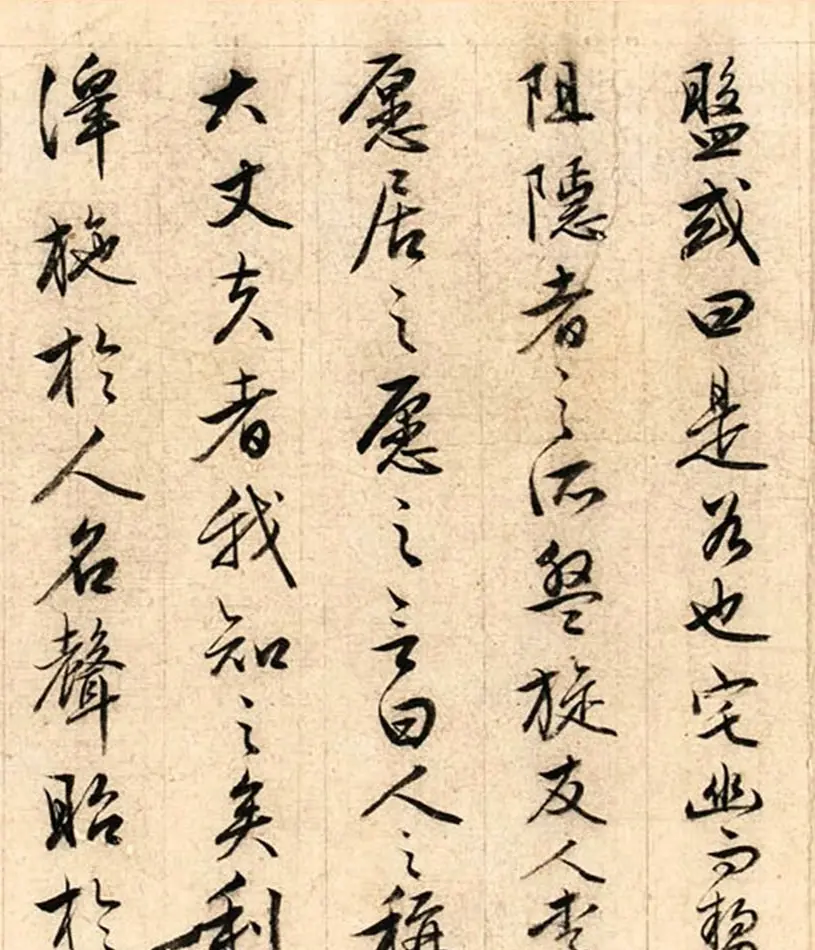 盤或曰是谷也宅幽而勢
阻隱者之所盤旋友人李
愿居之愿之言曰人之稱
大丈夫者我知之矣利
澤施於人名聲昭於